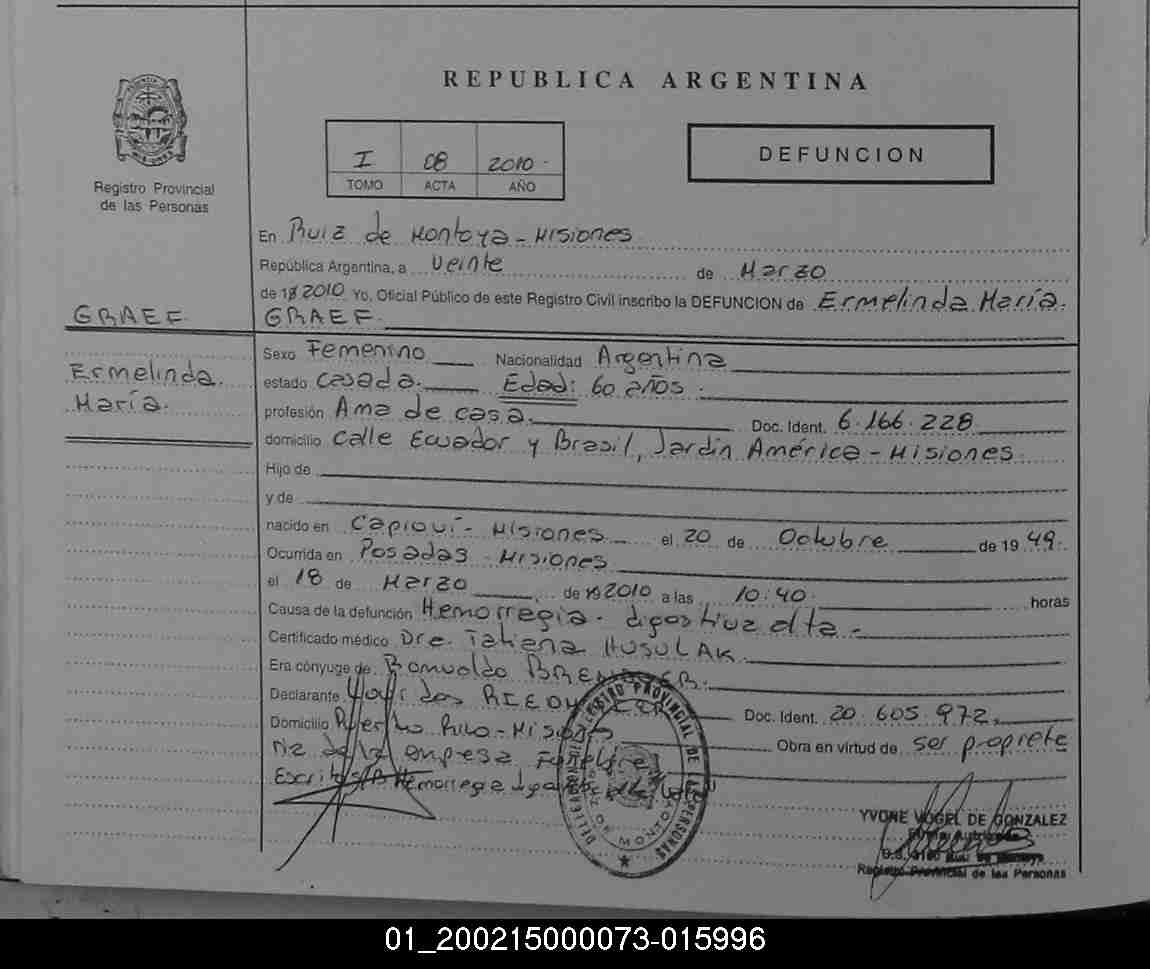 REPUBLICA ARGENTINA
I 08 2010.
TOMO ACTA AÑO
DEFUNCION
Registro Provincial
de las Personas
En Ruiz de Montoya - Misiones
República Argentina, a veinte de Marzo
de 2010 Yo, Oficial Público de este Registro Civil inscribo la DEFUNCION de Ermelinda María.
GRAEF
GRAEF.
Ermelinda
María.
Sexo Femenino Nacionalidad Argentina
estado casada. Edad: 60 años.
profesión Ama de casa. Doc. Ident. 6.166.228
domicilio calle Ecuador y Brasil, Jardín América - Misiones
Hijo de
y de
nacido en Capioví - Misiones el 20 de Octubre de 1949.
Ocurrida en Posadas - Misiones
el 18 de Marzo de 2010 a las 10:40 horas
Causa de la defunción Hemorragia digestiva alta -
Certificado médico Dra. Tatiana HUSULAK.
Era cónyuge de Romualdo
Declarante Doc. Ident. 20.605.972.
Domicilio Puerto Rico - Misiones Obra en virtud de ser propieta
ria de la empresa
Hemorragia
REGISTRO PROVINCIAL DE LAS PERSONAS
DE MONTOYA
YVONE VOGEL DE GONZALEZ
Registro Provincial de las Personas
01_200215000073-015996